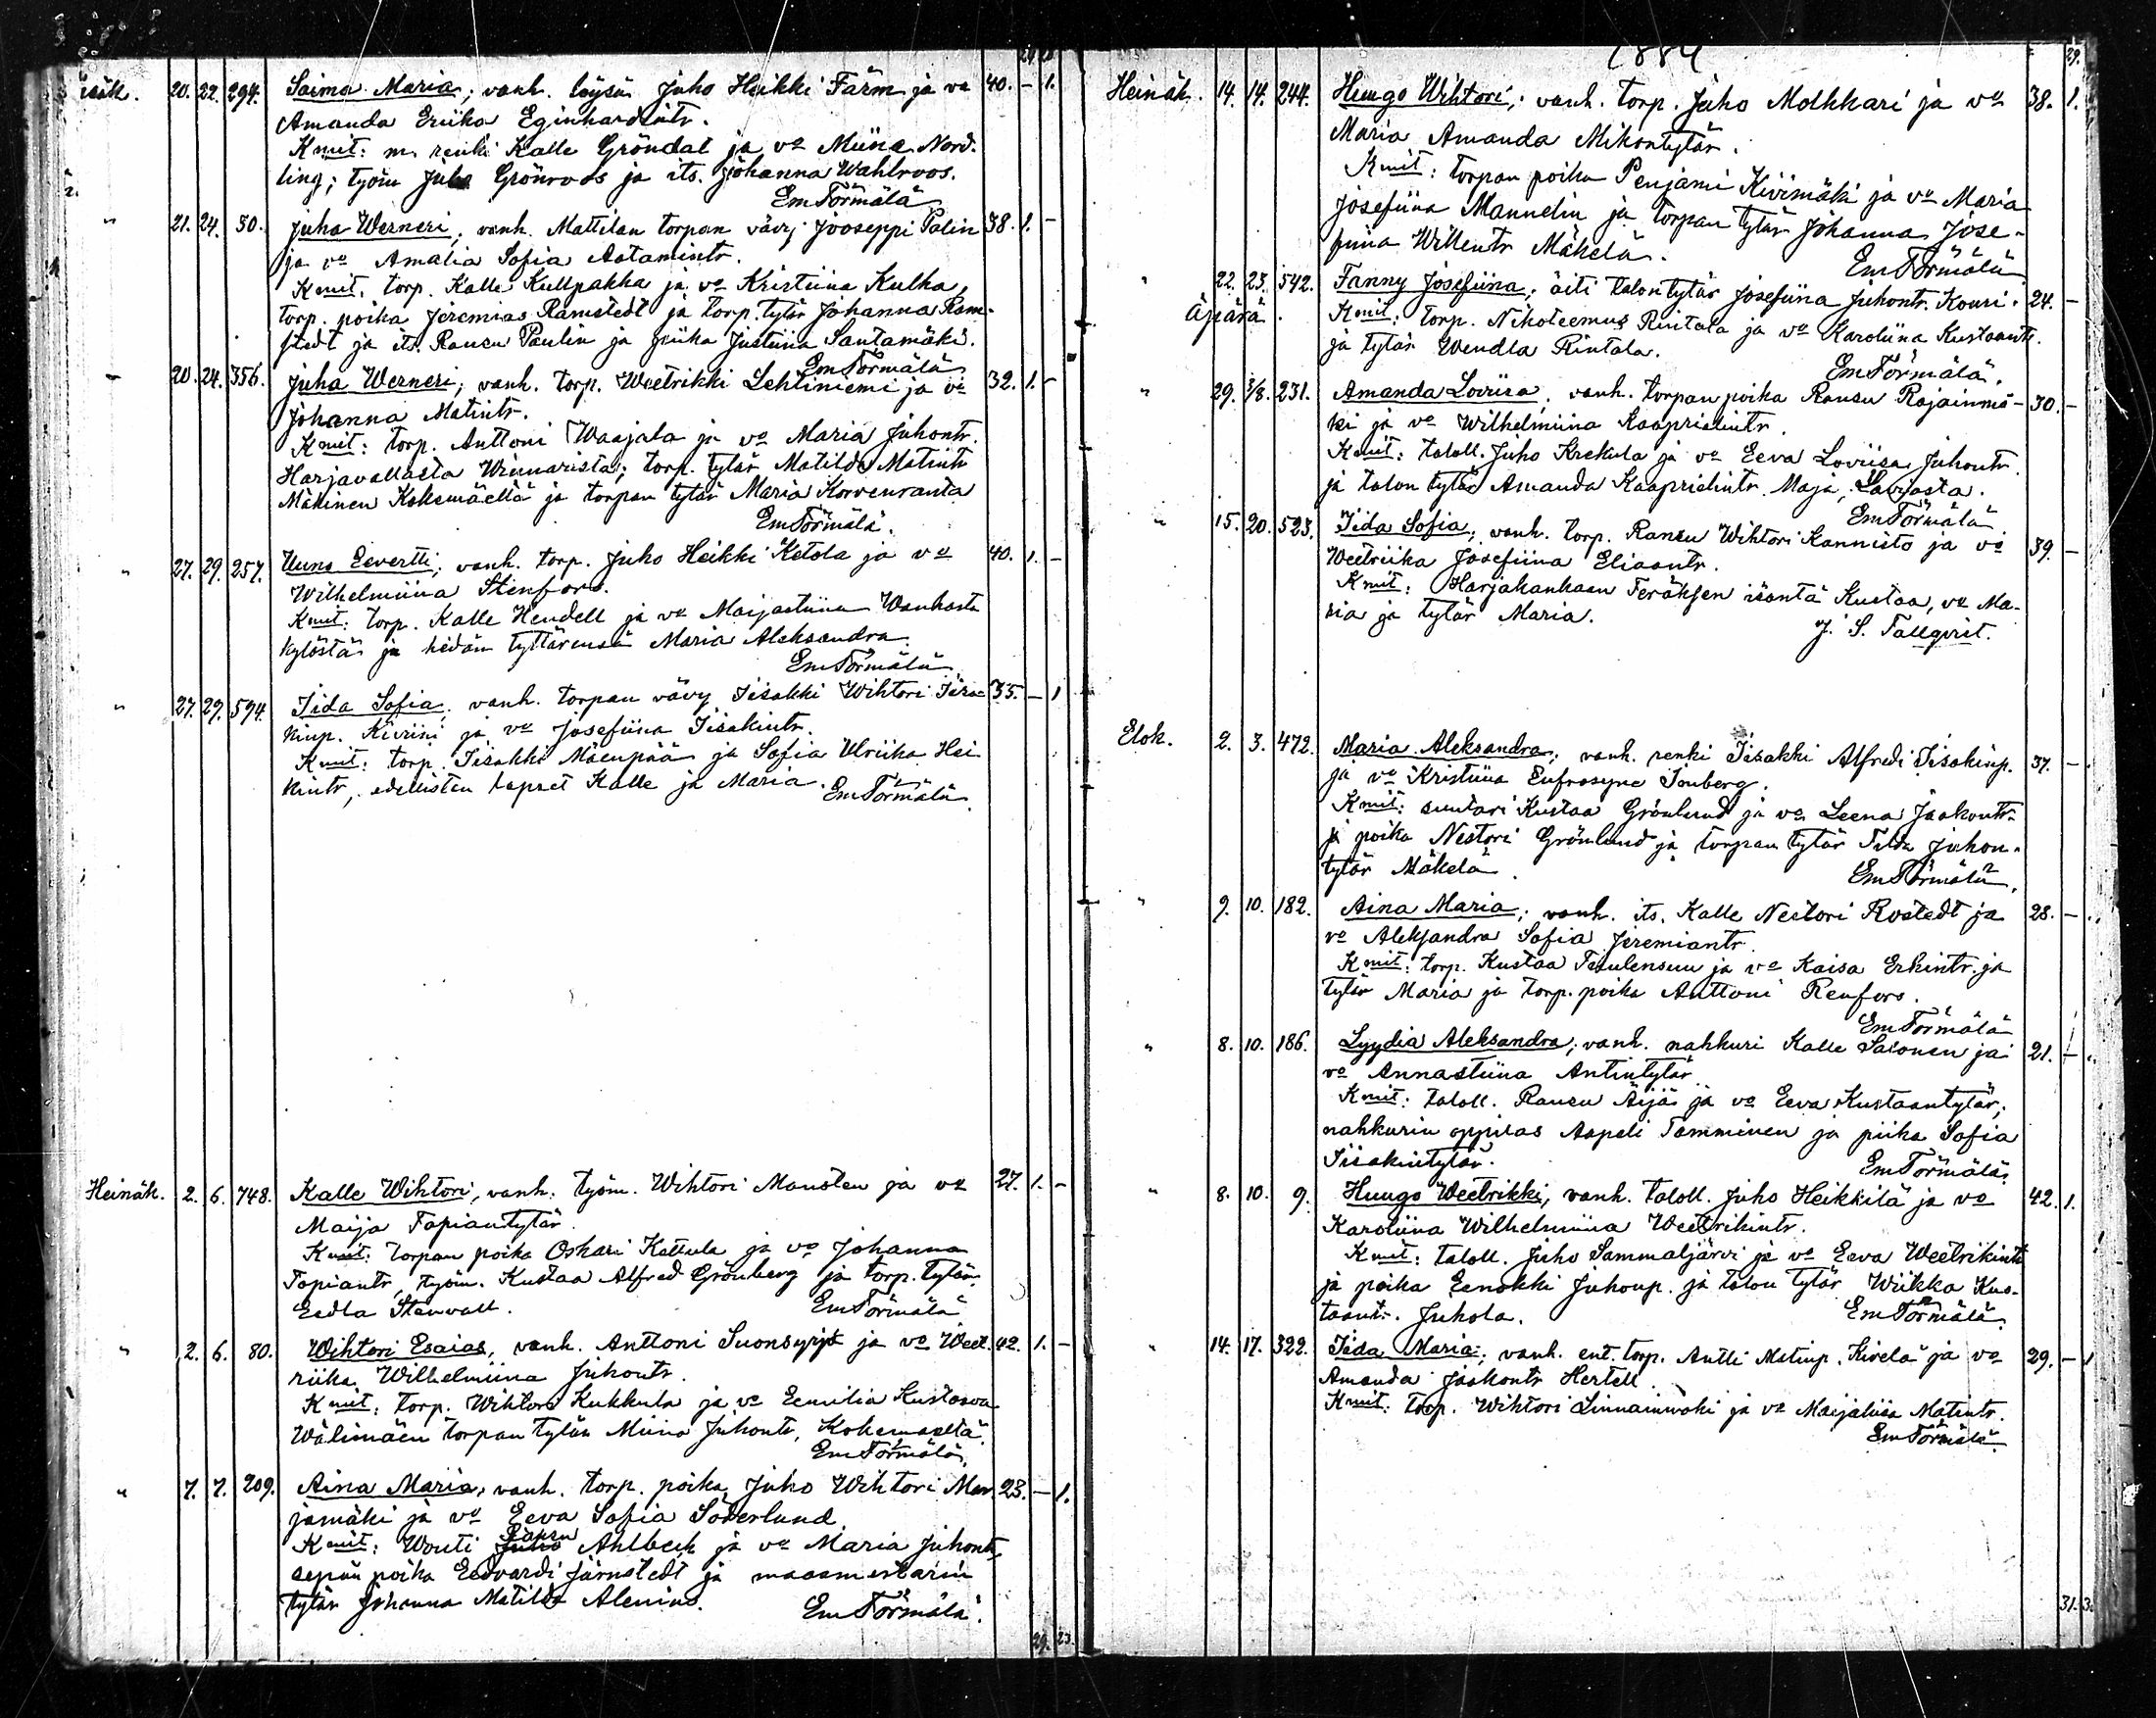 24
esäk. 20. 22. 294. Saima Maria; vanh. löysä Juho Heikki Färm ja va 40. - 1.
Amanda Eriika Eginhardintr.
Kmit: m. renki Kalle Gröndal ja va Miina Nord-
ling; työm Juho Grönroos ja its. Johanna Wahlroos.
Em Törmälä
" 21. 24. 50. Juha Werneri, vanh. Mattilan torpan vävy Jooseppi Palin 38. 1. -
ja va Amalia Sofia Aatamintr.
Kmit. torp. Kalle Kullpakka ja va Kristiina Kulha,
torp. poika Jeremias Ramstedt ja torp. tytär Johanna Ram-
stedt ja its. Ransu Paulin ja piika Justiina Santamäki.
Em Törmälä
- 20. 24. 356. Juha Werneri; vanh. torp. Weetrikki Lehtiniemi ja va 32. 1. -
Johanna Matintr.
Kmit: torp. Anttoni Waajala ja va Maria Juhontr.
Harjavallasta Winnarista; torp. tytär Matilda Matintr
Mäkinen Kokemäeltä ja torpan tytär Maria Korvenranta
Em Törmälä.
" 27. 29. 257. Uuno Eevertti; vanh. torp. Juho Heikki Ketola ja va 40. 1. -
Wilhelmiina Stenfors.
Kmit: torp. Kalle Hendell ja va Maijastiina Wanhasta
kylöstä ja heidän tyttärensä Maria Aleksandra.
Em Törmälä
" 27. 29. 594. Iida Sofia, vanh. torpan vävy Iisakki Wihtori Iisa- 35. - 1
kinp. Kivrini ja va Josefiina Iisakintr.
Kmit: torp. Iisakki Mäenpää ja Sofia Ulriika Hei-
kintr, edellisten lapset Kalle ja Maria. Em Törmälä
Heinäk. 2. 6. 748. Kalle Wihtori, vanh. työm. Wihtori Mansten ja va 27. 1. -
Maija Tapiantytär.
Kmit: torpan poika Oskari Kattula ja va Johanna
Topiantr, työm. Kustaa Alfred Grönberg ja torp. tytär
Eedla Stenvall. Em Törmälä
" 2. 6. 80. Wihtori Esaias, vanh. Anttoni Suonsyrjä ja va Weet- 42. 1. -
riika Wilhelmiina Juhontr.
Kmit: torp. Wihtori Kukkula ja va Eemilia Kustaava
Wälimäen torpan tytär Miina Juhontr, Kokemäeltä.
Em Törmälä,
" 7. 7. 209. Aina Maria, vanh. torp. poika Juho Wihtori Mar- 23. - 1.
jamäki ja va Eeva Sofia Söderlund.
Ransu
Kmit: Wouti Juho Ahlbeck ja va Maria Juhontr,
sepän poika Eedvardi Järnstedt ja maamestarin
tytär Johanna Matilda Alenius. Em Törmälä.
29. 23.
1884
29.
Heinäk. 14. 14. 244. Huugo Wihtori; vanh. torp. Juho Molkkari ja va 38. 1.
Maria Amanda Mikontytär.
Kmit: torpan poika Penjami Kivimäki ja va Maria
Josefiina Mannelin ja torpan tytär Johanna Jose-
fiina Willentr Mäkelä.
Em Törmälä
" 22. 23. 542. Fanny Josefiina; äiti talontytär Josefiina Juhontr. Kouri. 24. -
Äpärä. Kmit: torp. Nikoteemus Rintala ja va Karoliina Kustaantr.
ja tytär Wendla Rintala.
Em Törmälä.
" 29. 3/8. 231. Amanda Loviisa, vanh. torpan poika Ransu Rajainmä- 30. -
ki ja va Wilhelmiina Kaaprielintr.
Kmit: taloll. Juho Krekula ja va Eeva Loviisa Juhontr.
ja talon tytär Amanda Kaaprielintr Maja, Lavjasta.
Em Törmälä
" 15. 20. 523. Iida Sofia, vanh. torp. Ransu Wihtori Kannisto ja va 39. -
Weetriika Josefiina Eliaantr.
Kmit: Harjakankaan Teräksen isäntä Kustaa, va Ma-
ria ja tytär Maria.
J. S. Tallqvist.
Elok. 2. 3. 472. Maria Aleksandra; vanh. renki Iisakki Alfredi Iisakinp. 37. -
ja va Kristiina Eufrosyne Jonberg.
Kmit: suutari Kustaa Grönlund ja va Leena Jaakontr.
ja poika Nestori Grönlund ja torpan tytär Tilda Juhon-
tytär Mäkelä.
Em Törmälä.
" 9. 10. 182. Aina Maria; vanh. its. Kalle Nestori Rostedt ja 28. -
va Aleksandra Sofia Jeremiantr.
Kmit: torp. Kustaa Teulensuu ja va Kaisa Erkintr. ja
tytär Maria ja torp. poika Anttoni Renfors.
Em Törmälä
" 8. 10. 186. Lyydia Aleksandra; vanh. nahkuri Kalle Salonen ja 21. -
va Annastiina Antintytär
Kmit: taloll. Ransu Äijä ja va Eeva Kustaantytär,
nahkurin oppilas Aapeli Tamminen ja piika Sofia
Iisakintytär.
Em Törmälä
" 8. 10. 9. Huugo Weetrikki, vanh. taloll. Juho Heikkilä ja va 42. 1.
Karoliina Wilhelmiina Weetrikintr.
Kmit: taloll. Juho Sammaljärvi ja va Eeva Weetrikintr
ja poika Eenokki Juhonp. ja talon tytär Wiikka Kus-
taantr. Juhola. Em Törmälä
" 14. 17. 322. Iida Maria; vanh. ent. torp. Antti Matinp. Kivelä ja va 29. - 1
Amanda Jaakontr Hertell.
Kmit: torp. Wihtori Linnainmäki ja va Maijaliisa Matintr.
Em Törmälä
31. 3